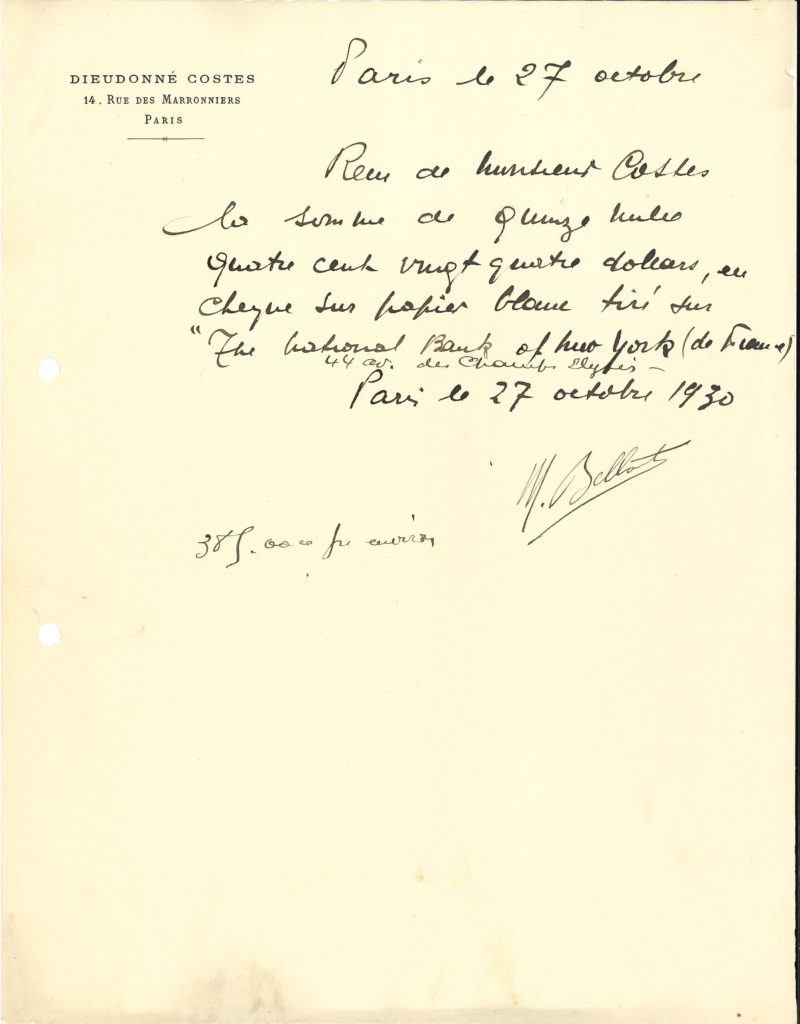 DIEUDONNÉ COSTES
14, RUE DES MARRONNIERS
PARIS
Paris le 27 octobre
Recu de Monsieur Costes
la somme de quinze mille
quatre cent vingt quatre dollars, en
cheque sur papier blanc tiré sur
"The National Bank of New York (de France)
44 av. des Champs Elysées –
Paris le 27 octobre 1930
M. Bellonte
385.000 frs environ